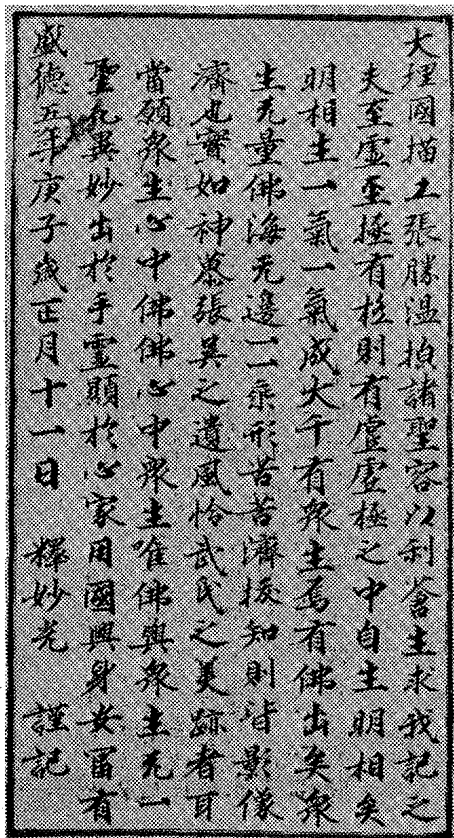 大理國描工張勝溫描諸聖容以利蒼生求我記之
夫至虛至極有極則有虛虛極之中自生明相矣
明相生一氣一氣成大千有眾生焉有佛出矣眾
生无量佛海无邊一一乘形苦苦濟拔知則皆影像
濟也寳如神慕張吳之遺風恰武氏之美跡者耳
當願眾生心中佛佛心中眾生唯佛與眾生无一
聖凡異妙出於手靈顯於心家用國興身安富有
盛德五年庚子歲正月十一日 釋妙光 謹記